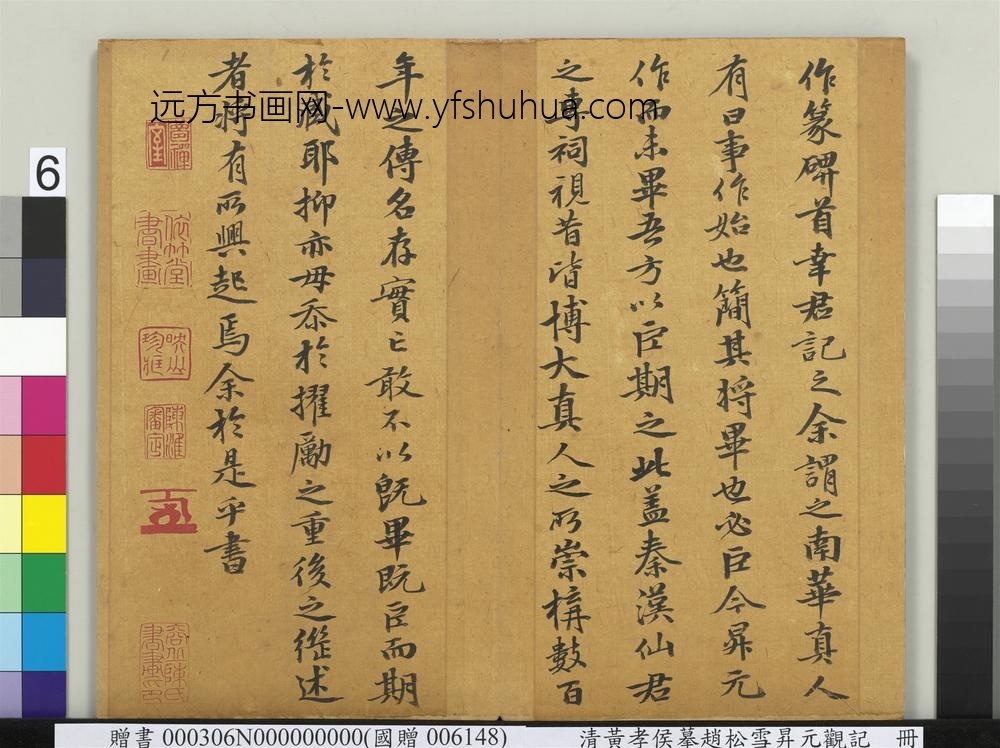 作篆碑首幸君記之余謂之南華真人
有曰事作始也簡其将畢也必巨今昇元
作而未畢吾方以巨期之此盖秦漢仙君
之專祠視昔皆博大真人之所崇構數百
年之傳名存實亡敢不以既畢既巨而期
於成耶抑亦毋忝於擢勵之重後之繼述
者将有所興起焉余於是乎書
畫禪室
依竹堂書畫
映山珍藏
陳淮審定
書畫印
远方书画网-www.yfshuhua.com
6
贈書 000306N000000000(國贈 006148)
清黃孝侯摹趙松雪昇元觀記 冊